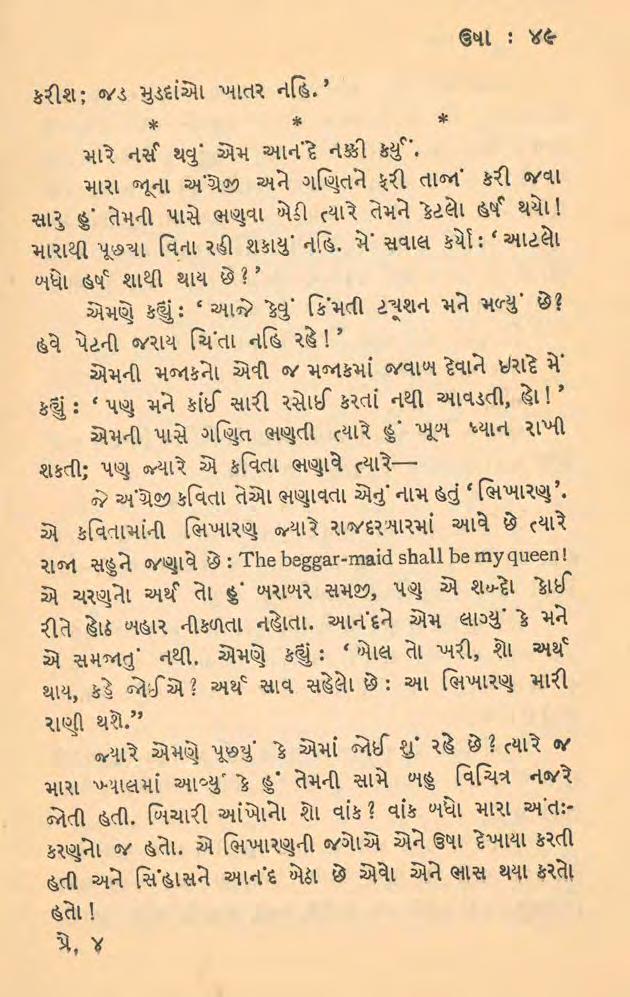 ઉષા : ૪૯
કરીશ; જડ મુડદાંઓ ખાતર નહિ.’
* * *
મારે નર્સ થવું એમ આનંદે નક્કી કર્યું.
મારા જૂના અંગ્રેજી અને ગણિતને ફરી તાજાં કરી જવા
સારુ હું તેમની પાસે ભણવા બેઠી ત્યારે તેમને કેટલો હર્ષ થયો!
મારાથી પૂછ્યા વિના રહી શકાયું નહિ. મેં સવાલ કર્યો: ‘આટલો
બધો હર્ષ શાથી થાય છે?’
એમણે કહ્યું: ‘આજે કેવું કિંમતી ટ્યૂશન મને મળ્યું છે?
હવે પેટની જરાય ચિંતા નહિ રહે!’
એમની મજાકનો એવી જ મજાકમાં જવાબ દેવાને ઇરાદે મેં
કહ્યું: ‘પણ મને કાંઈ સારી રસોઈ કરતાં નથી આવડતી, હો!’
એમની પાસે ગણિત ભણતી ત્યારે હું ખૂબ ધ્યાન રાખી
શકતી; પણ જ્યારે એ કવિતા ભણાવે ત્યારે—
જે અંગ્રેજી કવિતા તેઓ ભણાવતા એનું નામ હતું ‘ભિખારણ’.
એ કવિતામાંની ભિખારણ જ્યારે રાજદરબારમાં આવે છે ત્યારે
રાજા સહુને જણાવે છે: The beggar-maid shall be my queen!
એ ચરણનો અર્થ તો હું બરાબર સમજી, પણ એ શબ્દો કોઈ
રીતે હોઠ બહાર નીકળતા નહોતા. આનંદને એમ લાગ્યું કે મને
એ સમજાતું નથી. એમણે કહ્યું: ‘બોલ તો ખરી, શો અર્થ
થાય, કહે જોઈએ? અર્થ સાવ સહેલો છે: આ ભિખારણ મારી
રાણી થશે.”
જ્યારે એમણે પૂછ્યું કે એમાં જોઈ શું રહે છે? ત્યારે જ
મારા ખ્યાલમાં આવ્યું કે હું તેમની સામે બહુ વિચિત્ર નજરે
જોતી હતી. બિચારી આંખોનો શો વાંક? વાંક બધો મારા અંતઃ-
કરણનો જ હતો. એ ભિખારણની જગોએ એને ઉષા દેખાયા કરતી
હતી અને સિંહાસને આનંદ બેઠા છે એવો એને ભાસ થયા કરતો
હતો!
પ્રે. ૪